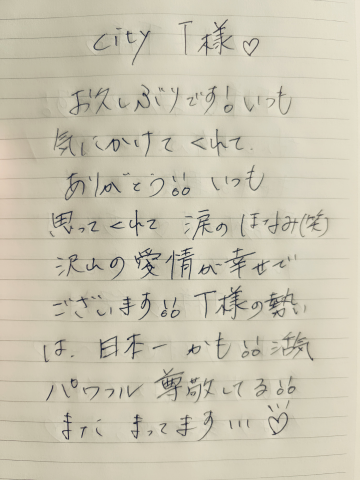 city T様♡
お久しぶりです!いつも
気にかけてくれて.
ありがとう!! いつも
思ってくれて 涙の ほなみ(笑)
沢山の愛情が幸せで
ございます!! T様の勢い
は、日本一かも!! 活気
パワフル 尊敬してる!!
また まってます…♡